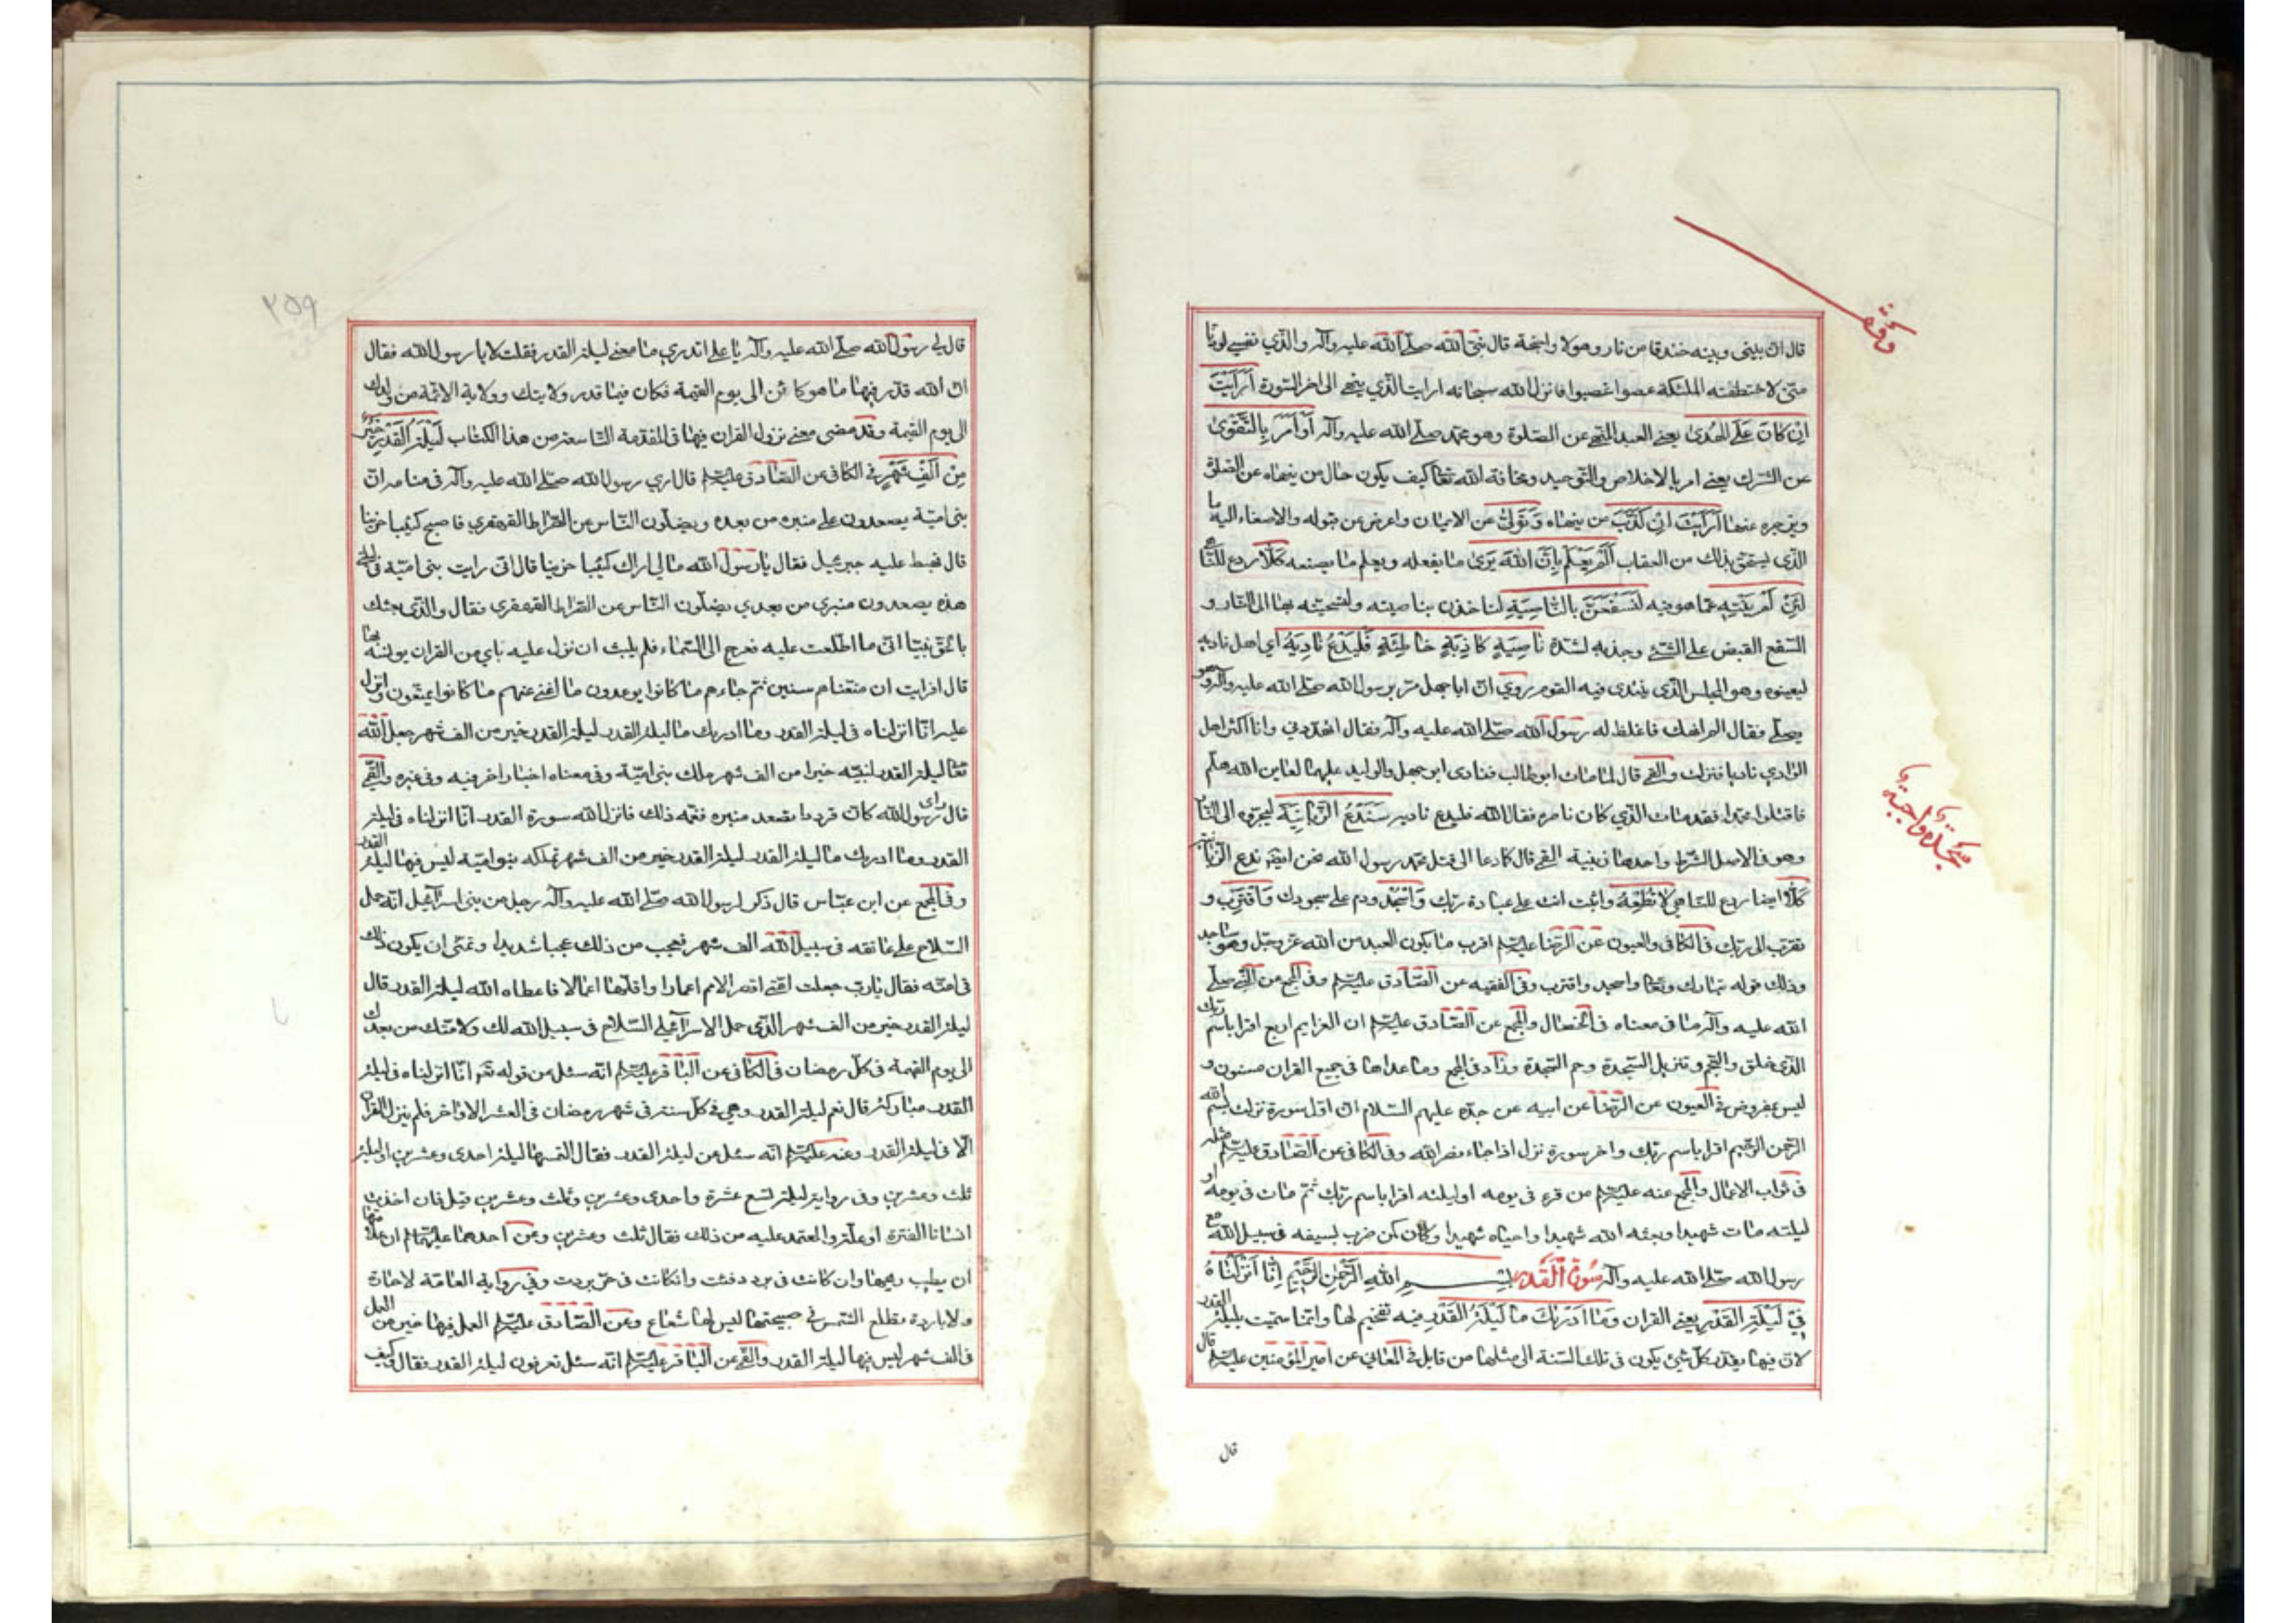 قال ان بيني وبينه خندقا من نار وهولا واجنحة قال نبي الله صلى الله عليه وآله والذي نفسي لو دنا
مني لاختطفته الملئكة عضوا عضوا فانزل الله سبحانه ارايت الذي ينهى الى اخر السورة أَرَأَيْتَ
اِنْ كَانَ عَلَى الْهُدىٰ يعني العبد المنهي عن الصلوة وهو محمد صلى الله عليه وآله أَوْ أَمَرَ بِالتَّقْوىٰ
عن الشرك يعني امر بالاخلاص والتوحيد ومخافة الله تعالى كيف يكون حال من ينهاه عن الصلوة
ويزجره عنها أَرَأَيْتَ اِنْ كَذَّبَ من ينهاه وَتَوَلّىٰ عن الايمان واعرض عن قبوله والاصغاء اليه ما
الذي يستحق بذلك من العقاب أَلَمْ يَعْلَمْ بِاَنَّ اللهَ يَرىٰ ما يفعله ويعلم ما يصنعه كَلَّا ردع للناهي
لَئِنْ لَمْ يَنْتَهِ عما هو فيه لَنَسْفَعَنْ بِالنَّاصِيَةِ لناخذن بناصيته ولنسحبنه بها الى النار و
السفع القبض على الشئ وجذبه لشدة نَاصِيَةٍ كَاذِبَةٍ خَاطِئَةٍ فَلْيَدْعُ نَادِيَهُ اي اهل ناديه
ليعينوه وهو المجلس الذي ينتدي فيه القوم روي ان اباجهل مر برسول الله صلى الله عليه وآله وهو
يصلي فقال الم انهك فاغلظ له رسول الله صلى الله عليه وآله فقال اتهددني وانا اكثر اهل
الوادي ناديا فنزلت والقمي قال لما مات ابوطالب فنادى ابوجهل والوليد عليهما لعاين الله هلم
فاقتلوا محمدا فقد مات الذي كان ناصره فقال الله فليدع ناديه سَنَدْعُ الزَّبَانِيَةَ ليجروه الى النار
وهو في الاصل الشرط واحدها زبنية القمي قال كما دعا الى قتل محمد رسول الله نحن ايضا ندع الزبانية
كَلَّا ايضا ردع للناهي لَا تُطِعْهُ واثبت انت على عبادة ربك وَاسْجُدْ ودم على سجودك وَاقْتَرِبْ و
تقرب الى ربك في الكافي والعيون عن الرضا عليه السلام اقرب ما يكون العبد من الله عز وجل وهو ساجد
وذلك قوله تبارك وتعالى واسجد واقترب وفي الفقيه عن الصادق عليه السلام وفي المجمع عن النبي صلى
الله عليه وآله ما في معناه في الخصال والمجمع عن الصادق عليه السلام ان العزايم اربع اقرا باسم ربك
الذي خلق والنجم وتنزيل السجدة وحم السجدة وزاد في المجمع وما عداها في جميع القران مسنون و
ليس بمفروض في العيون عن الرضا عن ابيه عن جده عليهم السلام ان اول سورة نزلت بسم الله
الرحمن الرحيم اقرا باسم ربك واخر سورة نزل اذا جاء نصر الله وفي الكافي عن الصادق عليه السلام مثله
في ثواب الاعمال والمجمع عنه عليه السلام من قرء في يومه او ليلته اقرا باسم ربك ثم مات في يومه او
ليلته مات شهيدا وبعثه الله شهيدا واحياه شهيدا وكان كمن ضرب بسيفه في سبيل الله مع
رسول الله صلى الله عليه وآله سورة القدر بسم اللهِ الرَّحْمٰنِ الرَّحِيمِ اِنَّا اَنْزَلْنَاهُ
فِي لَيْلَةِ الْقَدْرِ يعني القران وَمَا اَدْرٰىكَ مَا لَيْلَةُ الْقَدْرِ فيه تفخيم لها وانما سميت بليلة القدر
لان فيها يقدر كل شئ يكون في تلك السنة الى مثلها من قابل في المعاني عن امير المؤمنين عليه السلام قال
قال
سجده واجبة
قال لي رسول الله صلى الله عليه وآله يا علي اتدري ما معنى ليلة القدر فقلت لا يا رسول الله فقال
ان الله قدر فيها ما هو كائن الى يوم القيمة فكان فيما قدر ولايتك وولاية الائمة من ولدك
الى يوم القيمة وقد مضى معنى نزول القران فيها في المقدمة التاسعة من هذا الكتاب لَيْلَةُ الْقَدْرِ خَيْرٌ
مِنْ اَلْفِ شَهْرٍ في الكافي عن الصادق عليه السلام قال اري رسول الله صلى الله عليه وآله في منامه ان
بني امية يصعدون على منبره من بعده ويضلون الناس عن الصراط القهقري فاصبح كئيبا حزينا
قال فهبط عليه جبرئيل فقال يا رسول الله ما لي اراك كئيبا حزينا قال اني رايت بني امية في ليلتي
هذه يصعدون منبري من بعدي يضلون الناس عن الصراط القهقري فقال والذي بعثك
بالحق نبيا اني ما اطلعت عليه فعرج الى السماء فلم يلبث ان نزل عليه باي من القران يونسه بها
قال افرايت ان متعناهم سنين ثم جاءهم ما كانوا يوعدون ما اغنى عنهم ما كانوا يمتعون وانزل
عليه انا انزلناه في ليلة القدر وما ادريك ما ليلة القدر ليلة القدر خير من الف شهر جعل الله
تعالى ليلة القدر لنبيه خيرا من الف شهر ملك بني امية وفي معناه اخبار اخر فيه وفي غيره والقمي
قال راى رسول الله كان قردا تصعد منبره فغمه ذلك فانزل الله سورة القدر انا انزلناه في ليلة
القدر وما ادريك ما ليلة القدر ليلة القدر خير من الف شهر تملكه بنو امية ليس فيها ليلة القدر
وفي المجمع عن ابن عباس قال ذكر لرسول الله صلى الله عليه وآله رجل من بني اسرائيل انه حمل
السلاح على عاتقه في سبيل الله الف شهر فعجب من ذلك عجبا شديدا وتمنى ان يكون ذلك
في امته فقال يا رب جعلت امتي اقصر الامم اعمارا واقلها اعمالا فاعطاه الله ليلة القدر قال
ليلة القدر خير من الف شهر الذي حمل الاسرائيلي السلاح في سبيل الله لك ولامتك من بعدك
الى يوم القيمة في كل رمضان في الكافي عن الباقر عليه السلام انه سئل عن قوله تعالى انا انزلناه في ليلة
القدر مباركة قال نعم ليلة القدر وهي في كل سنة في شهر رمضان في العشر الاواخر فلم ينزل القران
الا في ليلة القدر وعنه عليه السلام انه سئل عن ليلة القدر فقال التمسها ليلة احدى وعشرين او ليلة
ثلث وعشرين وفي رواية ليلة تسع عشرة واحدى وعشرين وثلث وعشرين قيل فان اخذت
انسانا الفترة او علة وما المعتمد عليه من ذلك فقال ثلث وعشرين وعن احدهما عليهما السلام ان علامتها
ان يطيب ريحها وان كانت في برد دفئت وان كانت في حر بردت وفي رواية العامة لا حارة
ولا باردة تطلع الشمس في صبيحتها ليس لها شعاع وعن الصادق عليه السلام العمل فيها خير من العمل
في الف شهر ليس فيها ليلة القدر والقمي عن الباقر عليه السلام انه سئل تعرفون ليلة القدر فقال وكيف
٢٥٩